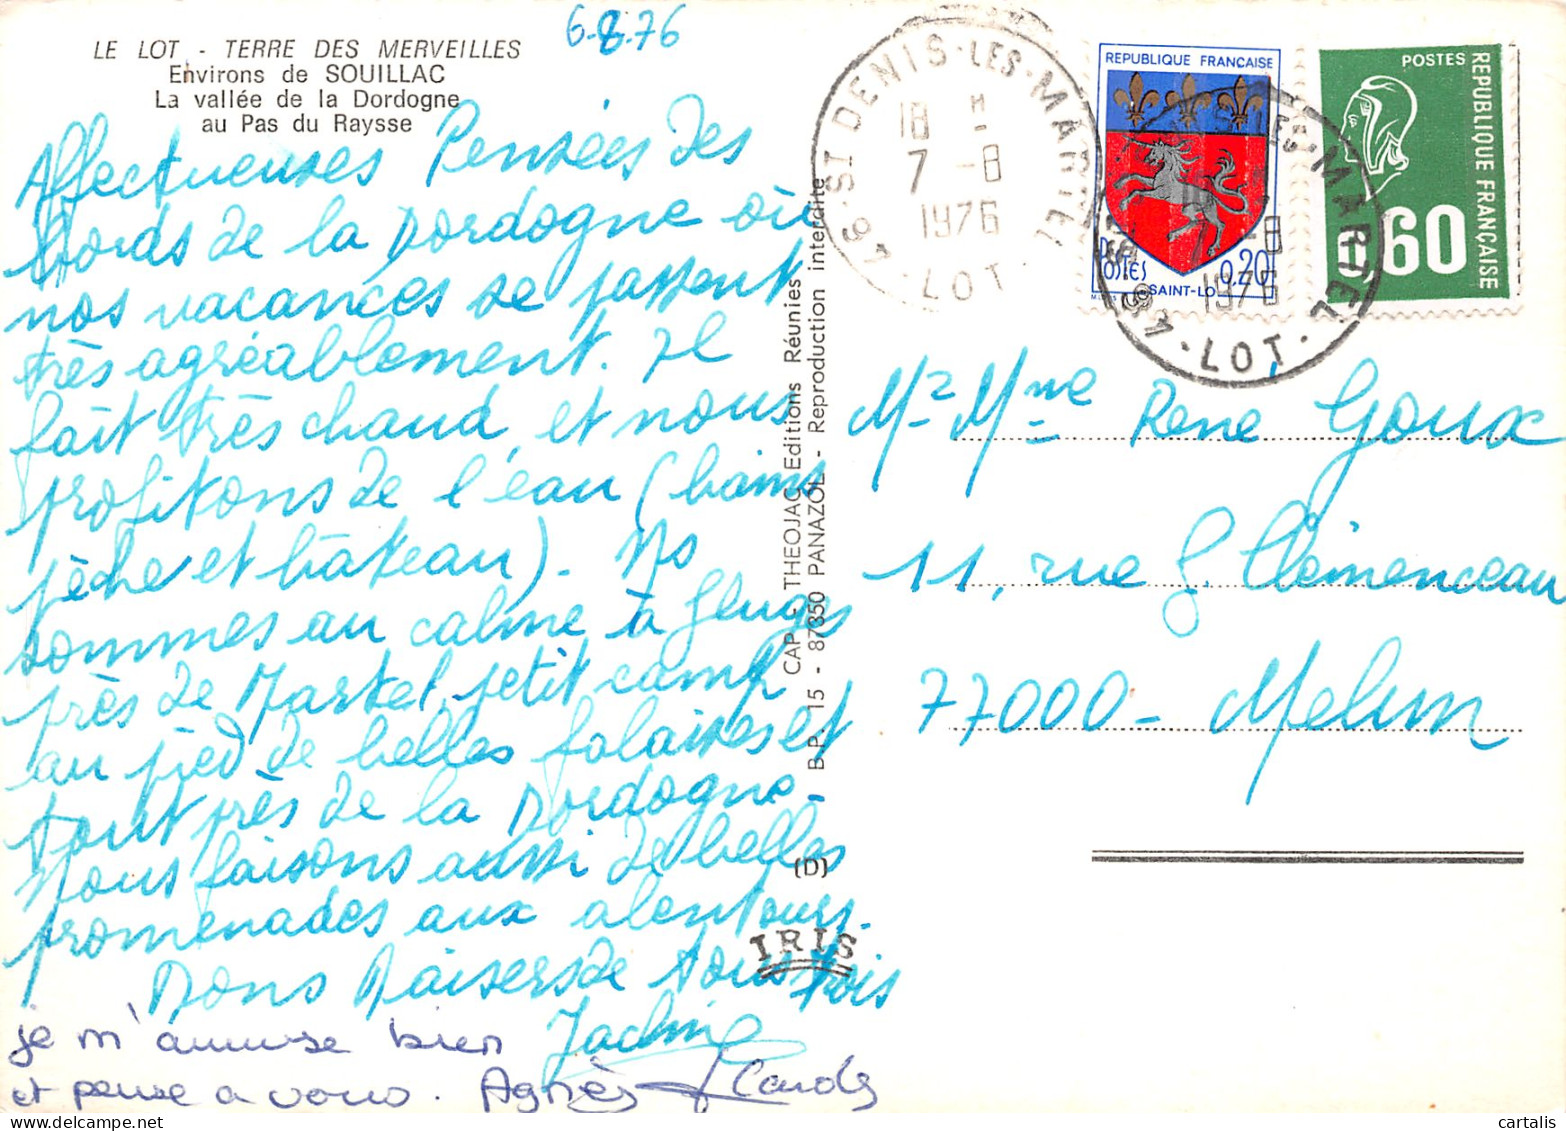 6-8-76
LE LOT - TERRE DES MERVEILLES
Environs de SOUILLAC
La vallée de la Dordogne
au Pas du Raysse
Affectueuses Pensées des
bords de la Dordogne où
nos vacances se passent
très agréablement. Il
fait très chaud, et nous
profitons de l'eau (bains
pêche et bâteau). Ns
sommes au calme à Genges
près de Martel, petit camp
au pied de belles falaises et
tout près de la Dordogne -
Nous faisons aussi de belles
promenades aux alentours.
Bons Baisers de tous trois
Jacline
je m'amuse bien
et pense a vous. Agnès Claude
CAP - THEOJAC Editions Réunies
B.P. 15 - 87350 PANAZOL - Reproduction interdite
(D)
IRIS
46-ST DENIS-LES-MARTEL
18 H -
7 -8
1976
LOT
REPUBLIQUE FRANCAISE
POSTES
0,20
SAINT-LO
46 LES-MARTEL
7 -8
1976
LOT
POSTES
REPUBLIQUE FRANÇAISE
0.60
Mr Mme René Goux
11, rue G. Clémenceau
77000 - Melun
cartalis